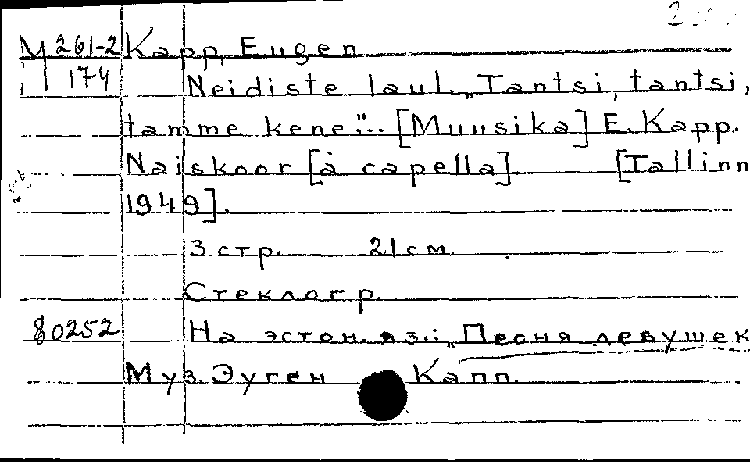 М 261-2 Kapp, Eugen
174 Neidiste laul „Tantsi, tantsi,
tamme kene"... [Muusika] E. Kapp.
Naiskoor [à capella]. [Tallinn
1949].
3 стр. 21 см.
Стеклогр.
80252 На эстон. яз.: „Песня девушек
Муз. Эуген Капп.